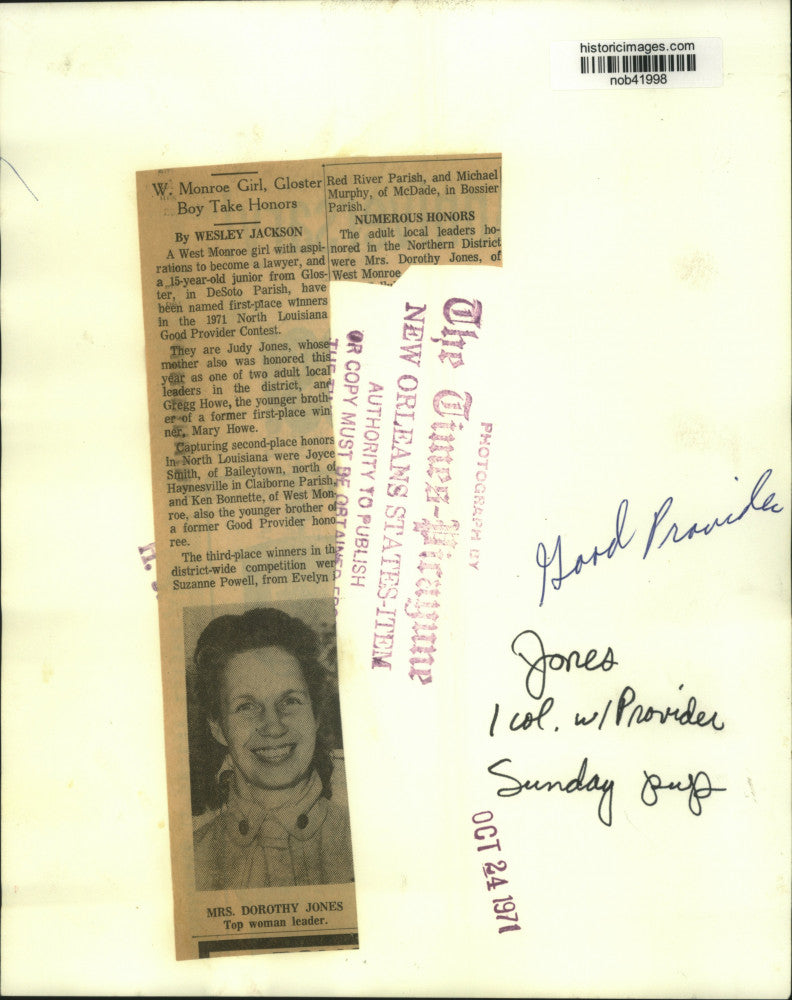 historicimages.com
nob41998
W. Monroe Girl, Gloster
Boy Take Honors
By WESLEY JACKSON
A West Monroe girl with aspi-
rations to become a lawyer, and
a 15-year-old junior from Glos-
ter, in DeSoto Parish, have
been named first-place winners
in the 1971 North Louisiana
Good Provider Contest.
They are Judy Jones, whose
mother also was honored this
year as one of two adult local
leaders in the district, and
Gregg Howe, the younger broth-
er of a former first-place win
ner, Mary Howe.
Capturing second-place honors
in North Louisiana were Joyce
Smith, of Baileytown, north of
Haynesville in Claiborne Parish,
and Ken Bonnette, of West Mon-
roe, also the younger brother of
a former Good Provider hono
ree.
The third-place winners in th
district-wide competition wer
Suzanne Powell, from Evelyn i
Red River Parish, and Michael
Murphy, of McDade, in Bossier
Parish.
NUMEROUS HONORS
The adult local leaders ho-
nored in the Northern District
were Mrs. Dorothy Jones, of
West Monroe
MRS. DOROTHY JONES
Top woman leader.
PHOTOGRAPH BY
The Times-Picayune
NEW ORLEANS STATES-ITEM
AUTHORITY TO PUBLISH
OR COPY MUST BE OBTAINED FR
Good Provider
Jones
1 col. w/ Provider
Sunday
OCT 24 1971